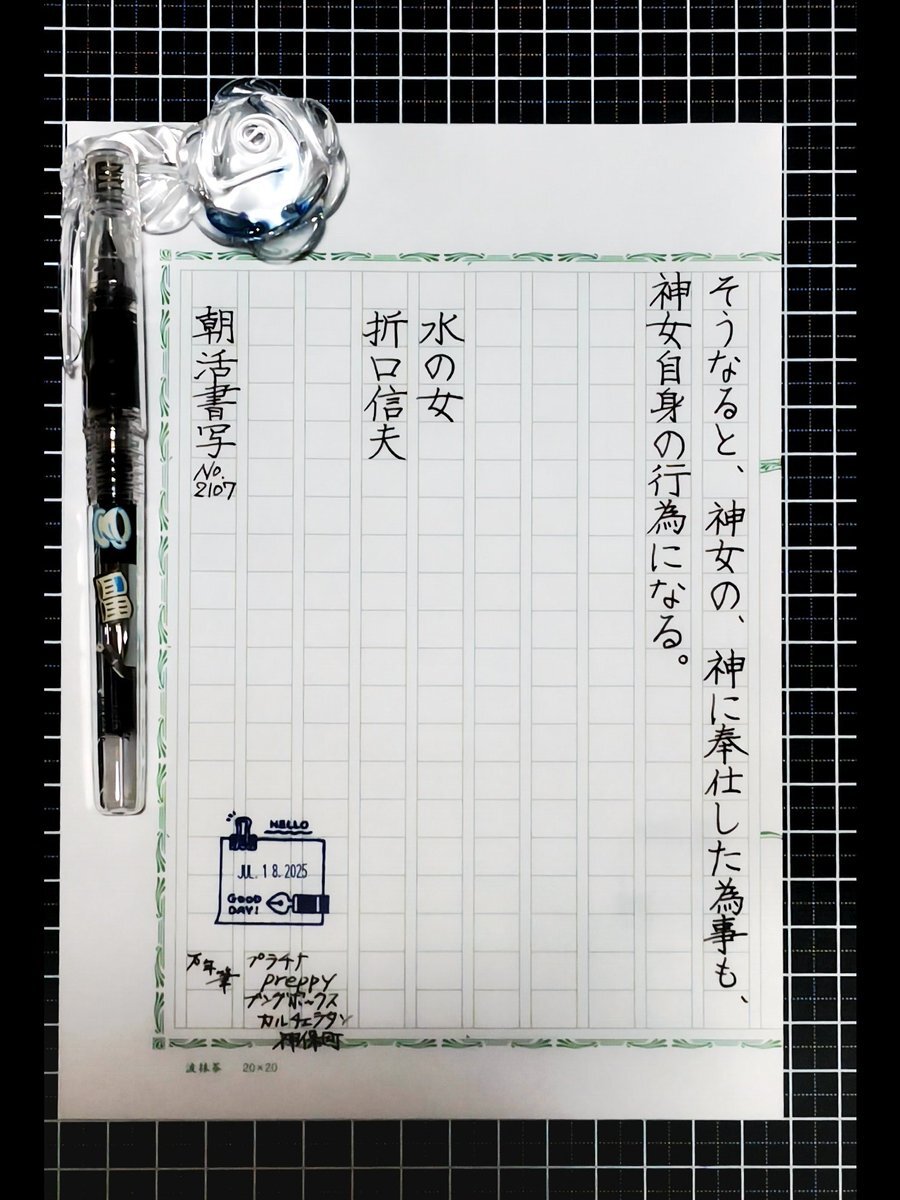 そうなると、神女の、神に奉仕した為事も、
神女自身の行為になる。
水の女
折口信夫
朝活書写
No.
2107
HELLO
JUL. 18. 2025
GOOD
DAY!
万年筆
プラチナ
preppy
ブングボックス
カルチェラタン
神保町
20×20